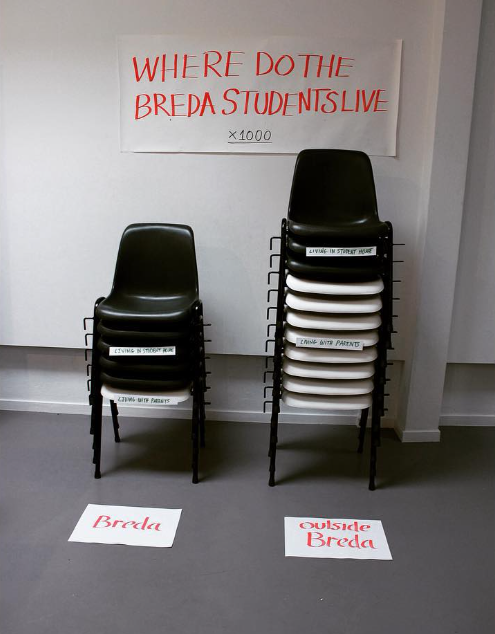 WHERE DO THE
BREDA STUDENTS LIVE
x1000
LIVING IN STUDENT HOME
LIVING WITH PARENTS
LIVING IN STUDENT HOME
LIVING WITH PARENTS
Breda
outside
Breda